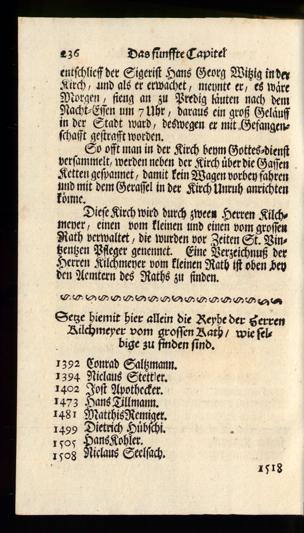 236 Das fünffte Capitel
entschlieff der Sigerist Hans Georg Witzig in der
Kirch, und als er erwachet, meynt er, es wäre
Morgen, fieng an zu Predig läuten nach dem
Nacht-Essen um 7 Uhr, daraus ein groß Geläuff
in der Stadt ward, deswegen er mit Gefangen-
schafft gestrafft worden.
So offt man in der Kirch beym Gottes-dienst
versammelt, werden neben der Kirch über die Gassen
Ketten gespannet, damit kein Wagen vorbey fahren
und mit dem Gerassel in der Kirch Unruh anrichten
könne.
Diese Kirch wird durch zween Herren Kilch-
meyer, einen vom kleinen und einen vom grossen
Rath verwaltet, die wurden vor Zeiten St. Vin-
tzentzen Pfleger genennet. Eine Verzeichnuß der
Herren Kilchmeyer vom kleinen Rath ist oben bey
den Aemtern des Raths zu finden.
Setze hiemit hier allein die Reyhe der Herren
Kilchmeyer vom grossen Rath/ wie sel-
bige zu finden sind.
1392 Conrad Saltzmann.
1394 Niclaus Stettler.
1402 Jost Apothecker.
1473 Hans Tillmann.
1481 Matthis Remiger.
1499 Dietrich Hübschi.
1505 Hans Kohler.
1508 Niclaus Seelsach.
1518